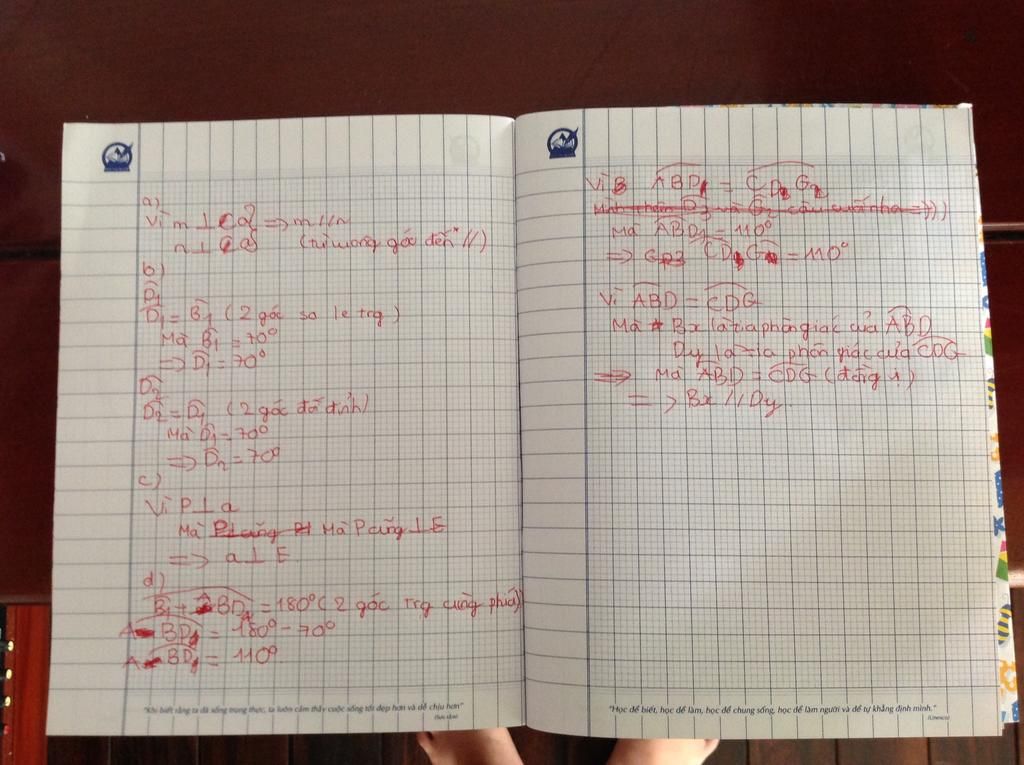 a)
Vì m ⊥ a => m // n
n ⊥ a (từ vuông góc đến //)
b)
D̂1
D̂1 = B̂1 (2 góc so le trg)
Mà B̂1 = 70°
=> D̂1 = 70°
D̂2
D̂2 = D̂1 (2 góc đối đỉnh)
Mà D̂1 = 70°
=> D̂2 = 70°
c)
Vì P ⊥ a
Mà Mà P cũng ⊥ E
=> a ⊥ E
d)
B̂1 + BD1 = 180° (2 góc trg cùng phía)
A BD1 = 180° - 70°
A BD1 = 110°.
"Khi biết rằng ta đã sống trung thực, ta luôn cảm thấy cuộc sống tốt đẹp hơn và dễ chịu hơn"
(Sưu tầm)
Vì ABD1 = CD G2
Mà ABD1 = 110°
=> CD G = 110°
Vì ABD = CDG
Mà Bx là tia phân giác của ABD
Dy là tia phân giác của CDG
=> Mà ABD = CDG (đồng vị)
=> Bx // Dy.
"Học để biết, học để làm, học để chung sống, học để làm người và để tự khẳng định mình."
(Unesco)